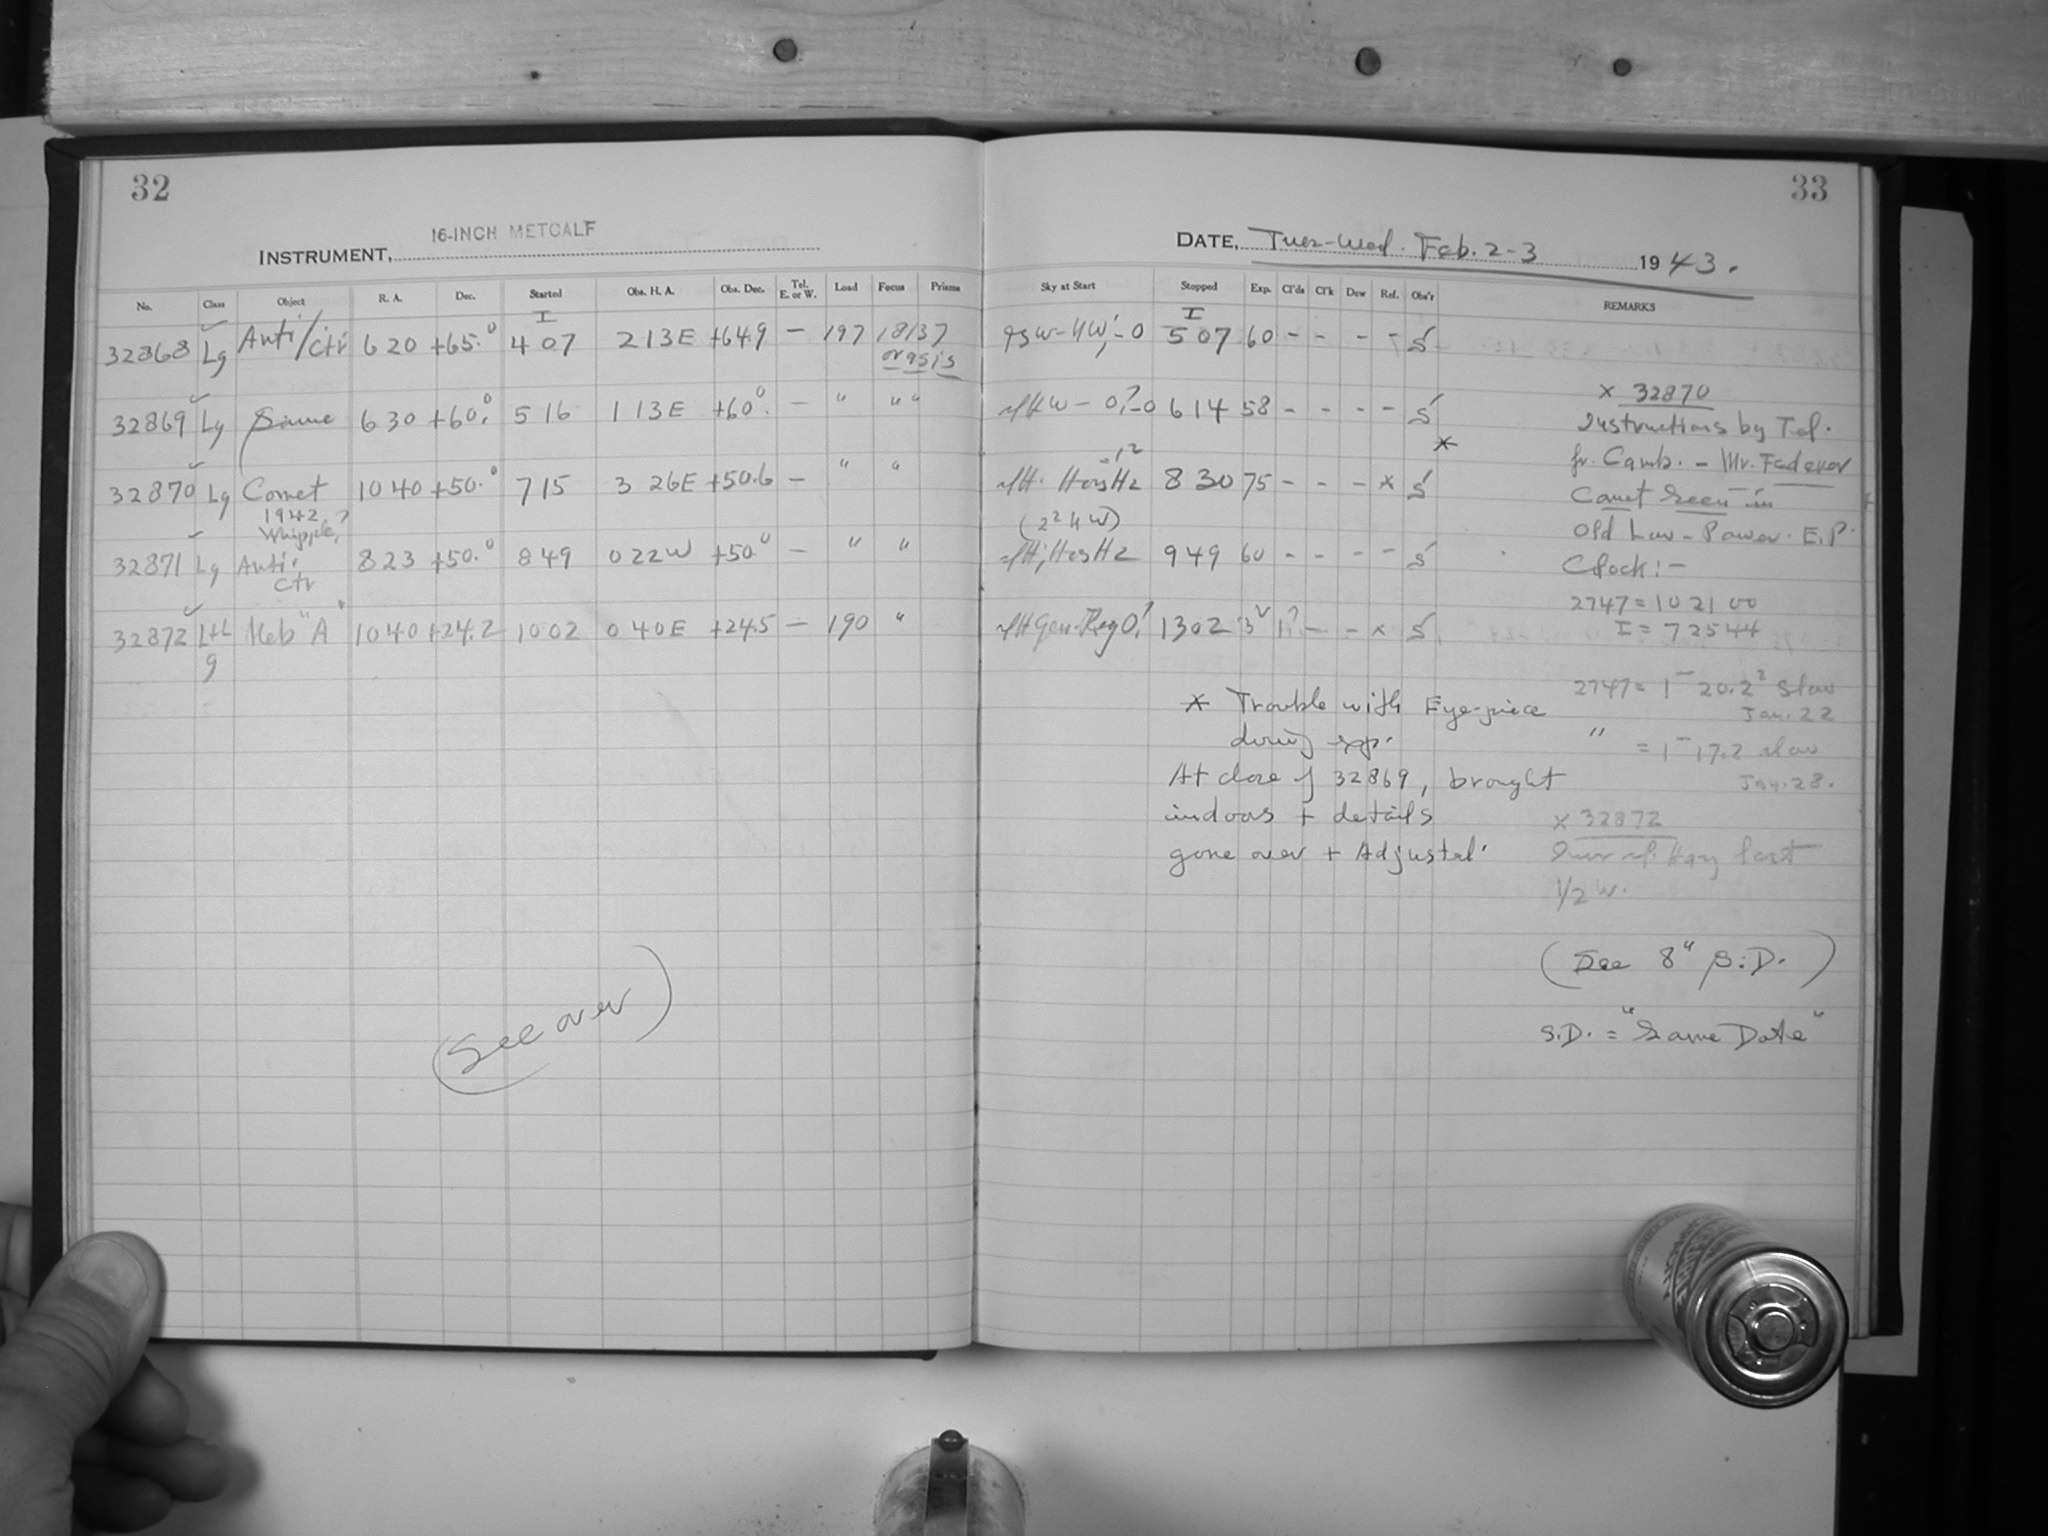 32
16-INCH METCALF
INSTRUMENT,
No. Class Object R. A. Dec. Started Obs. H. A. Obs. Dec. Tel. E. or W. Load Focus Prisms
32868 Lg Anti/Ctr 6 20 +65.0 I 4 07 2 13 E +64.9 — 197 18137
or as is
32869 Lg Same 6 30 +60.0 5 16 1 13 E +60.0 — " "
32870 Lg Comet 10 40 +50.0 7 15 3 26 E +50.6 — " "
1942
Whipple?
32871 Lg Anti- 8 23 +50.0 8 49 0 22 W +50.0 — " "
Ctr
32872 Neb "A" 10 40 +24.2 10 02 0 40 E +24.5 — 190 "
g
(See over)
33
DATE, Tues-Wed. Feb. 2-3 1943.
Sky at Start Stopped Exp. Cl'ds Cl'k Dew Ref. Obs'r REMARKS
I 5 07 60 - - - - S
6 14 58 - - - - S
*
8 30 75 - - - x S
9 49 60 - - - - S
13 02 - - x S
x 32870
Instructions by Tel.
fr. Camb. - Mr.
Comet seen in
Old Low-Power. E.P.
Clock:-
2747 = 10 21 00
I = 7 25 44
2747 = 1 - 20.2 slow
Jan. 22
" = 1 - 17.2 slow
Jan. 28.
x 32872
Haz last
1/2 W.
* Trouble with Eye-piece
during exp.
At close of 32869, brought
indoors + details
gone over + Adjusted.
(See 8" S.D.)
S.D. = "Same Date"